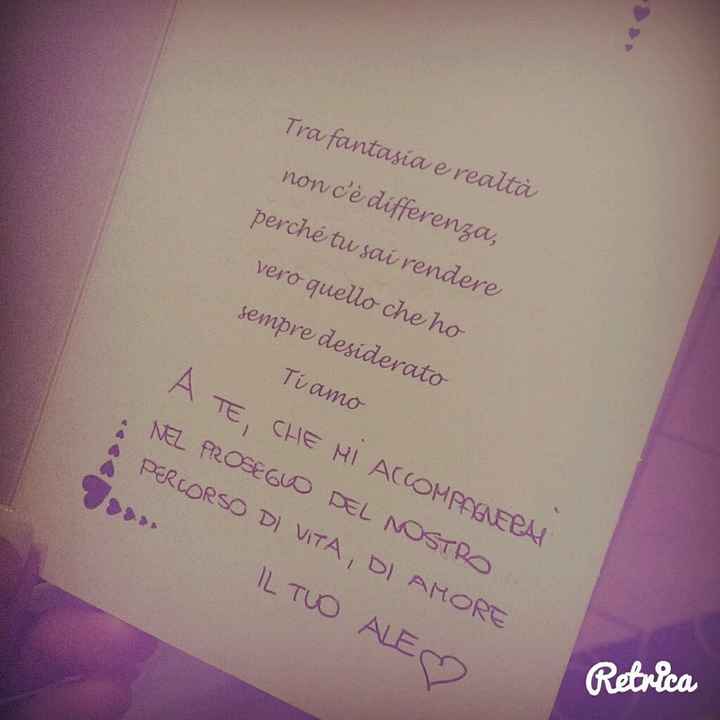 Tra fantasia e realtà
non c'è differenza,
perché tu sai rendere
vero quello che ho
sempre desiderato
Ti amo
A TE, CHE MI ACCOMPAGNERAI
NEL PROSEGUO DEL NOSTRO
PERCORSO DI VITA, DI AMORE
IL TUO ALE
Retrica